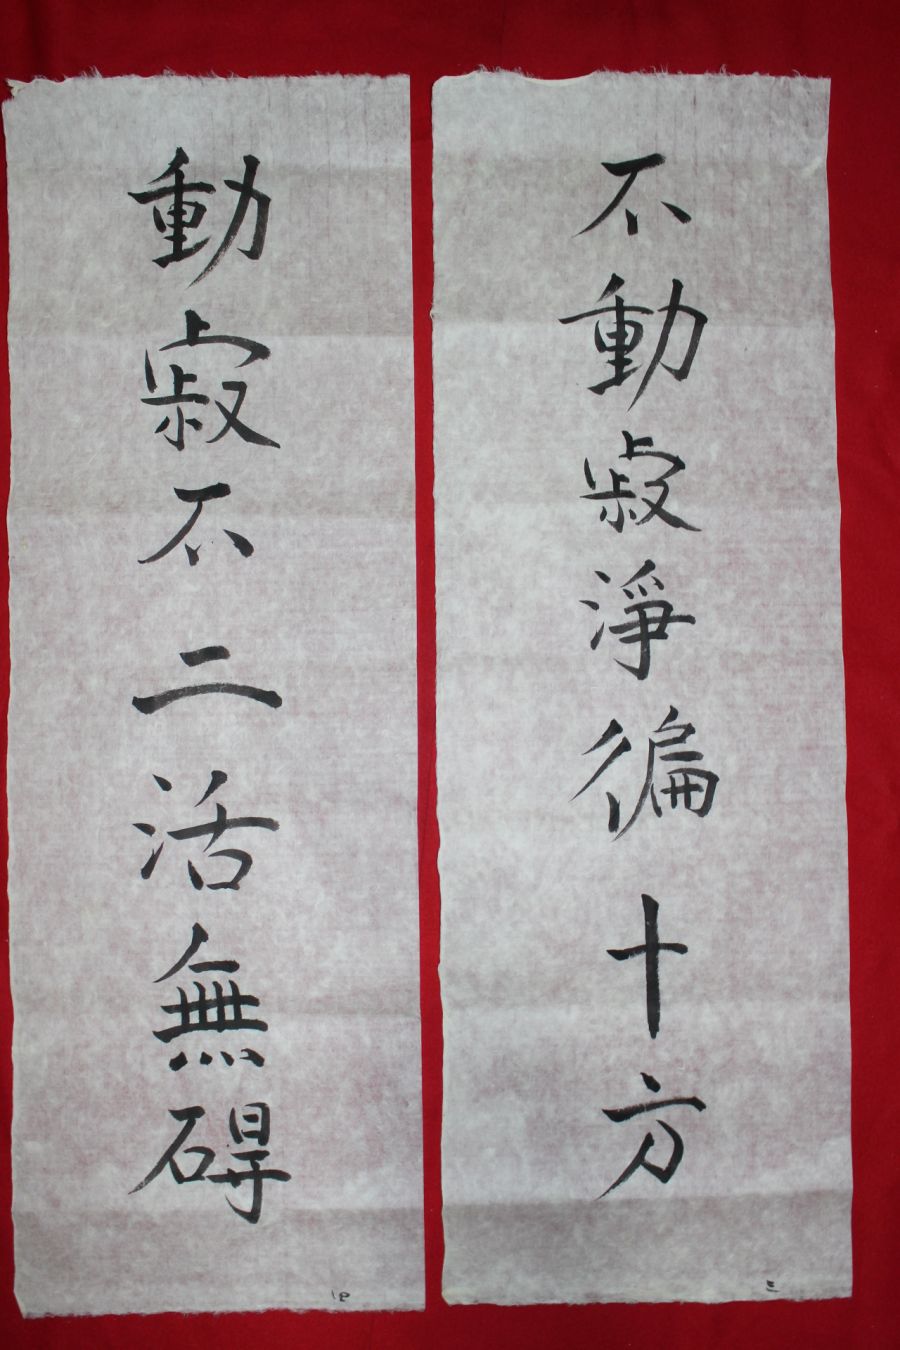 不動寂淨徧十方
三
動寂不二活無碍
四